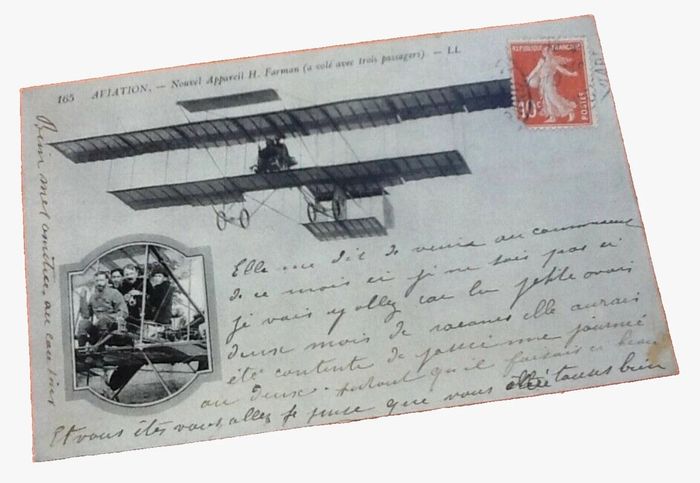 165 AVIATION. — Nouvel Appareil H. Farman (a volé avec trois passagers). — LL
REPUBLIQUE FRANÇAISE
10c
POSTES
Elle me dit de venir au commencement
de ce mois ci je ne sais pas si
je vais y aller car la petite avais
deux mois de vacances elle aurais
été contente de passer une journée
au deux. surtout qu'il faisais si beau
Et vous êtes vous allez je pense que vous êtes tous bien
Bien mes au